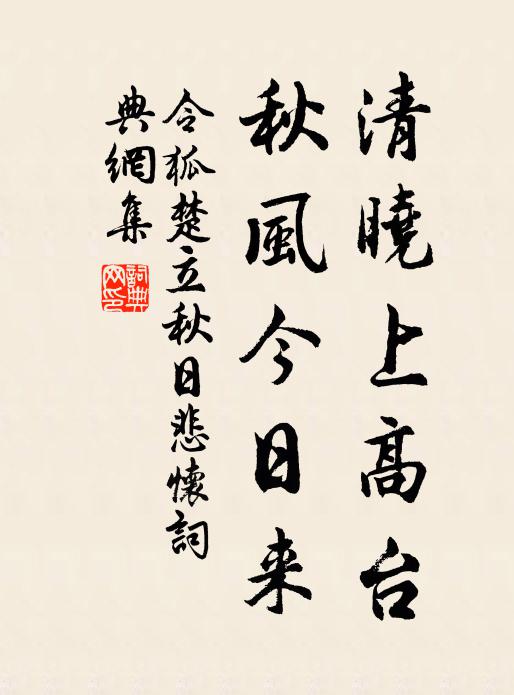 清曉上高台
秋風今日来
令狐楚立秋日悲懷詞
典網集
詞典
网印